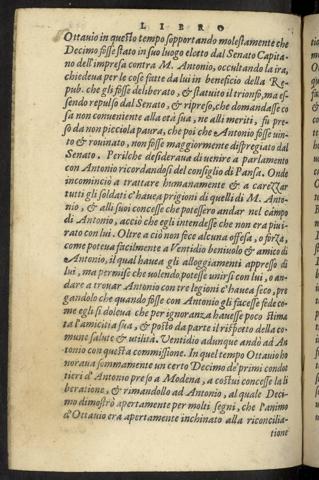 LIBRO
Ottavio in questo tempo sopportando molestamente che
Decimo fosse stato in suo luogo eletto dal Senato Capita
no dell'impresa contra M. Antonio, occultando la ira,
chiedeva per le cose fatte da lui in beneficio della Re-
pub. che gli fosse deliberato, & statuito il trionfo, ma es-
sendo repulso dal Senato, & ripreso, che domandasse co
sa non conveniente alla età sua, ne alli meriti, fu pre-
so da non picciola paura, che poi che Antonio fosse uin-
to & rouinato, non fosse maggiormente dispregiato dal
Senato. Perilche desideraua di uenire a parlamento
con Antonio ricordandosi del consiglio di Pansa. Onde
incominciò a trattare humanamente & a carezzar
tutti gli soldati c'haueа prigioni di quelli di M. Anto-
nio, & alli suoi concesse che potessero andar nel campo
di Antonio, acciò che egli intendesse che non era piu i-
rato con lui. Oltre a ciò non fece alcuna offesa, o forza,
come poteua facilmente a Ventidio beniuolo & amico di
Antonio, il qual haueua gli alloggiamenti appresso di
lui, ma permise che uolendo potesse unirsi con lui, o an-
dare a trouar Antonio con tre legioni c'hauea seco, pre
gandolo che quando fosse con Antonio gli facesse fede co-
me egli si doleua che per ignoranza hauesse poco stima
ta l'amicitia sua, & posto da parte il rispetto della co-
mune salute & utilità. Ventidio adunque andò ad An
tonio con questa commissione. In quel tempo Ottauio ho
norauа sommamente un certo Decimo de' primi condot
tieri d'Antonio preso a Modena, a costui concesse la li
beratione, & rimandollo ad Antonio, al quale Deci-
mo dimostrò apertamente per molti segni, che l'animo
d'Ottauio era apertamente inchinato alla riconcilia-
tione